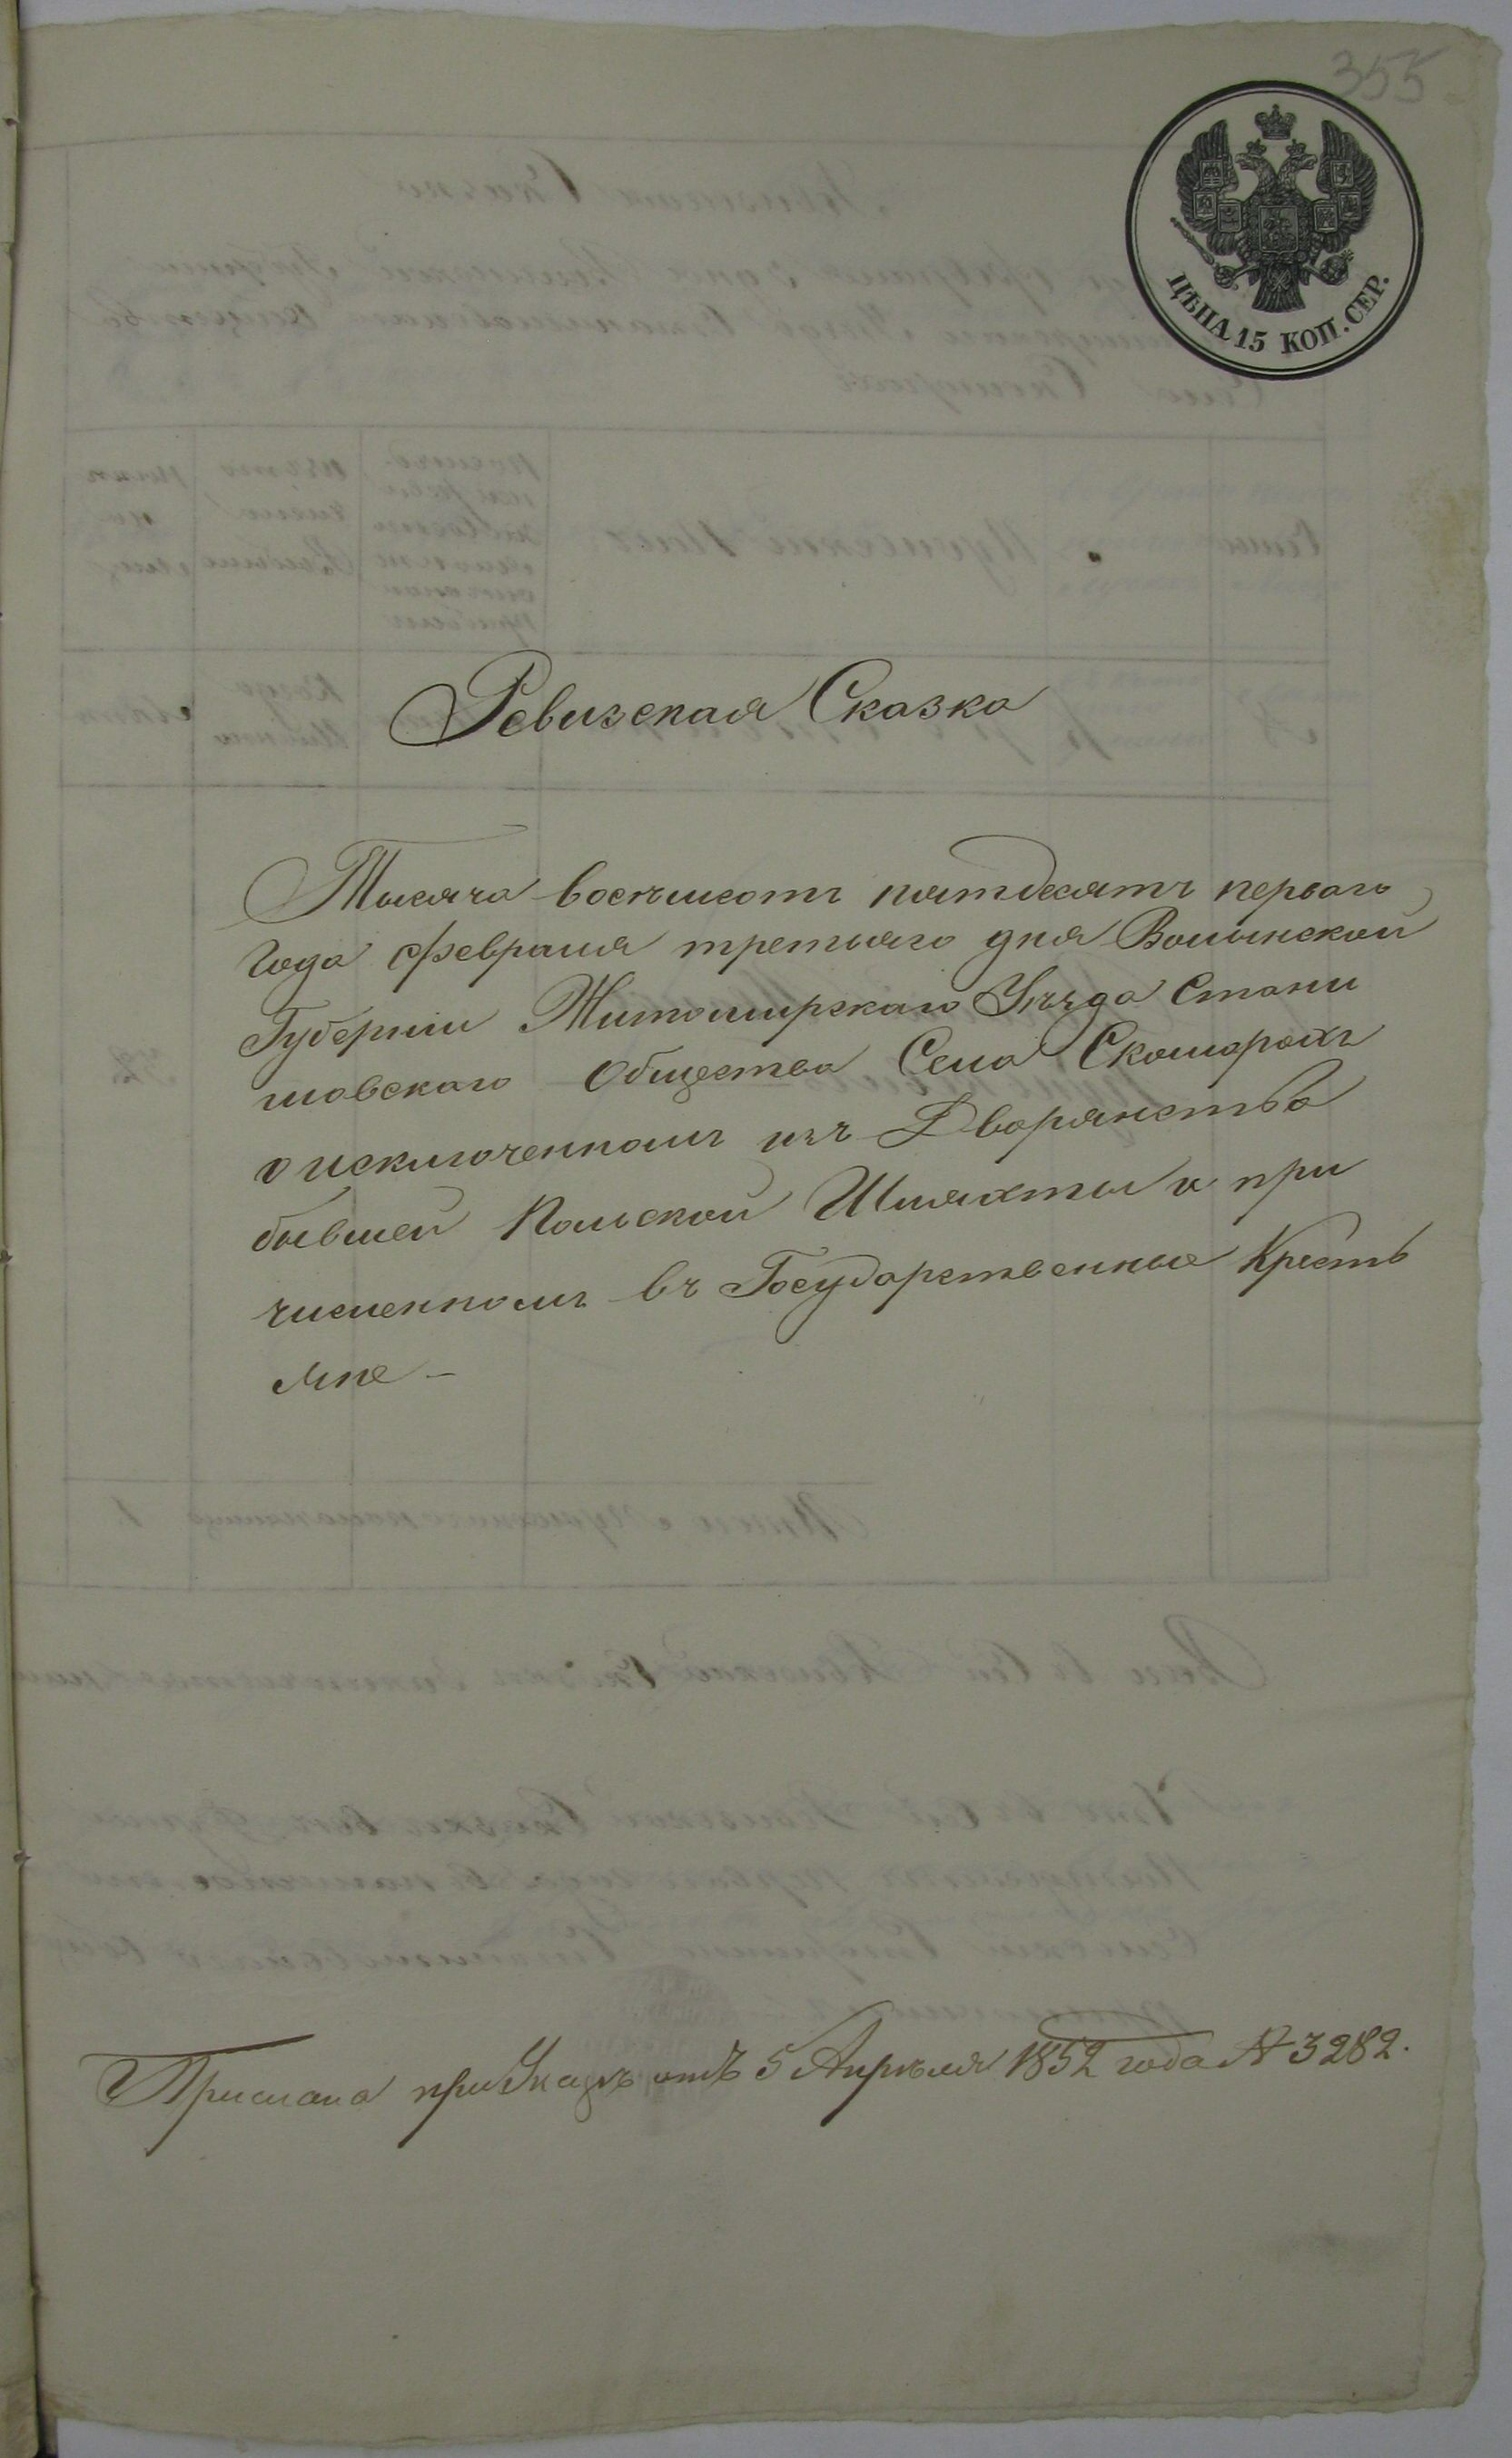 355
ЦѢНА 15 КОП. СЕР.
Ревизская Сказка
Тысяча восемьсотъ пятдесятъ перваго
Года февраля третьяго дня Волынской
Губерніи Житомирскаго Уѣзда Стани
шовскаго Общества Села Скомарохъ
о исключенномъ изъ Дворянства
бывшей Польской Шляхты и при
численномъ въ Государственные Кресть
яне —
Прислана при Указѣ отъ 5 Апрѣля 1852 года № 3282.